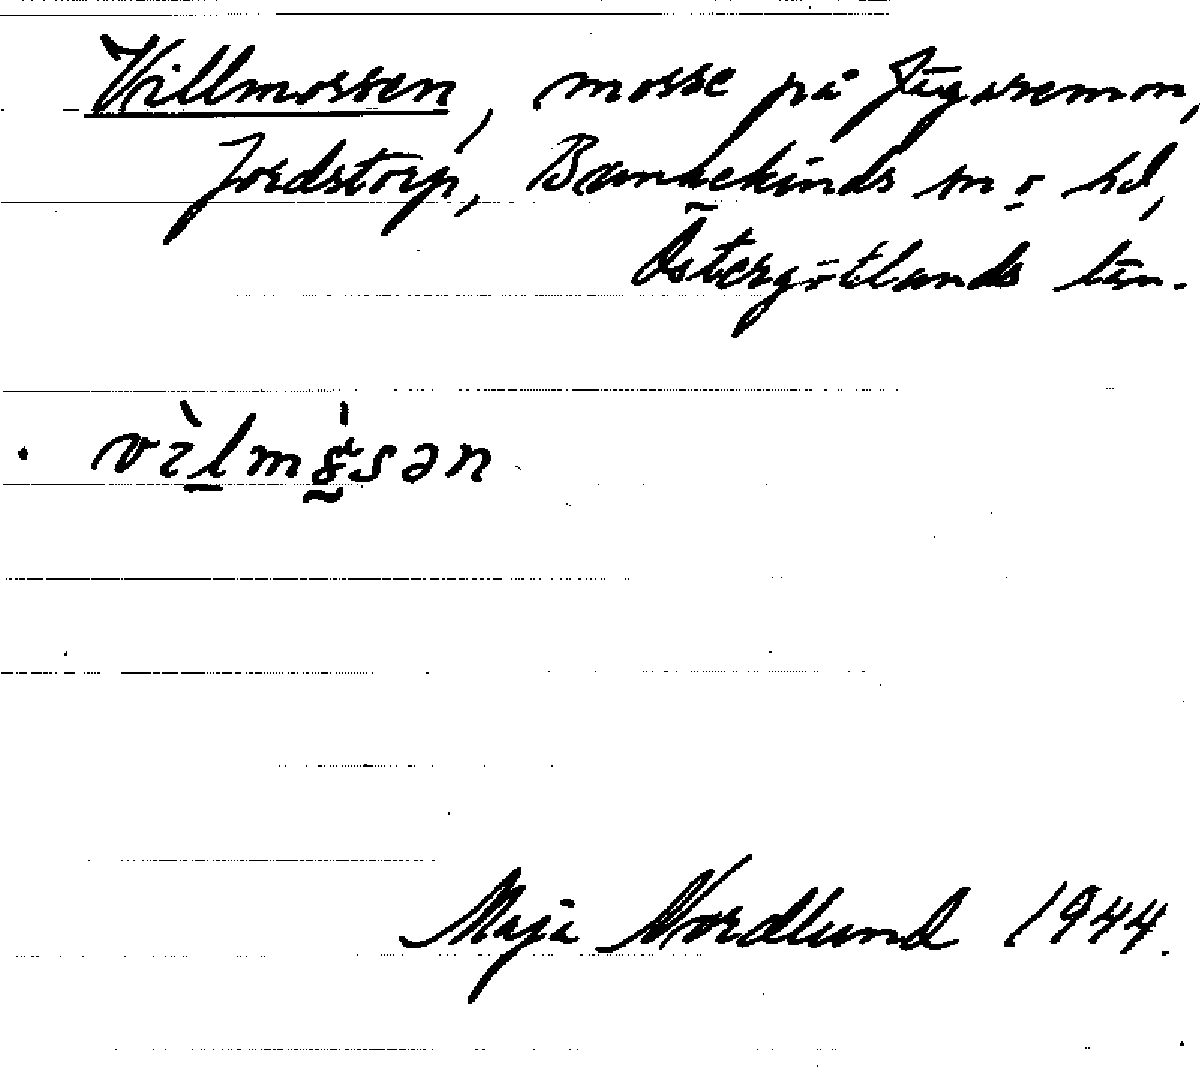 Villmossen, mosse på Jägaremon,
Jordstorp, Bankekinds sn o hd,
Östergötlands län.
Maja Nordlund 1944.